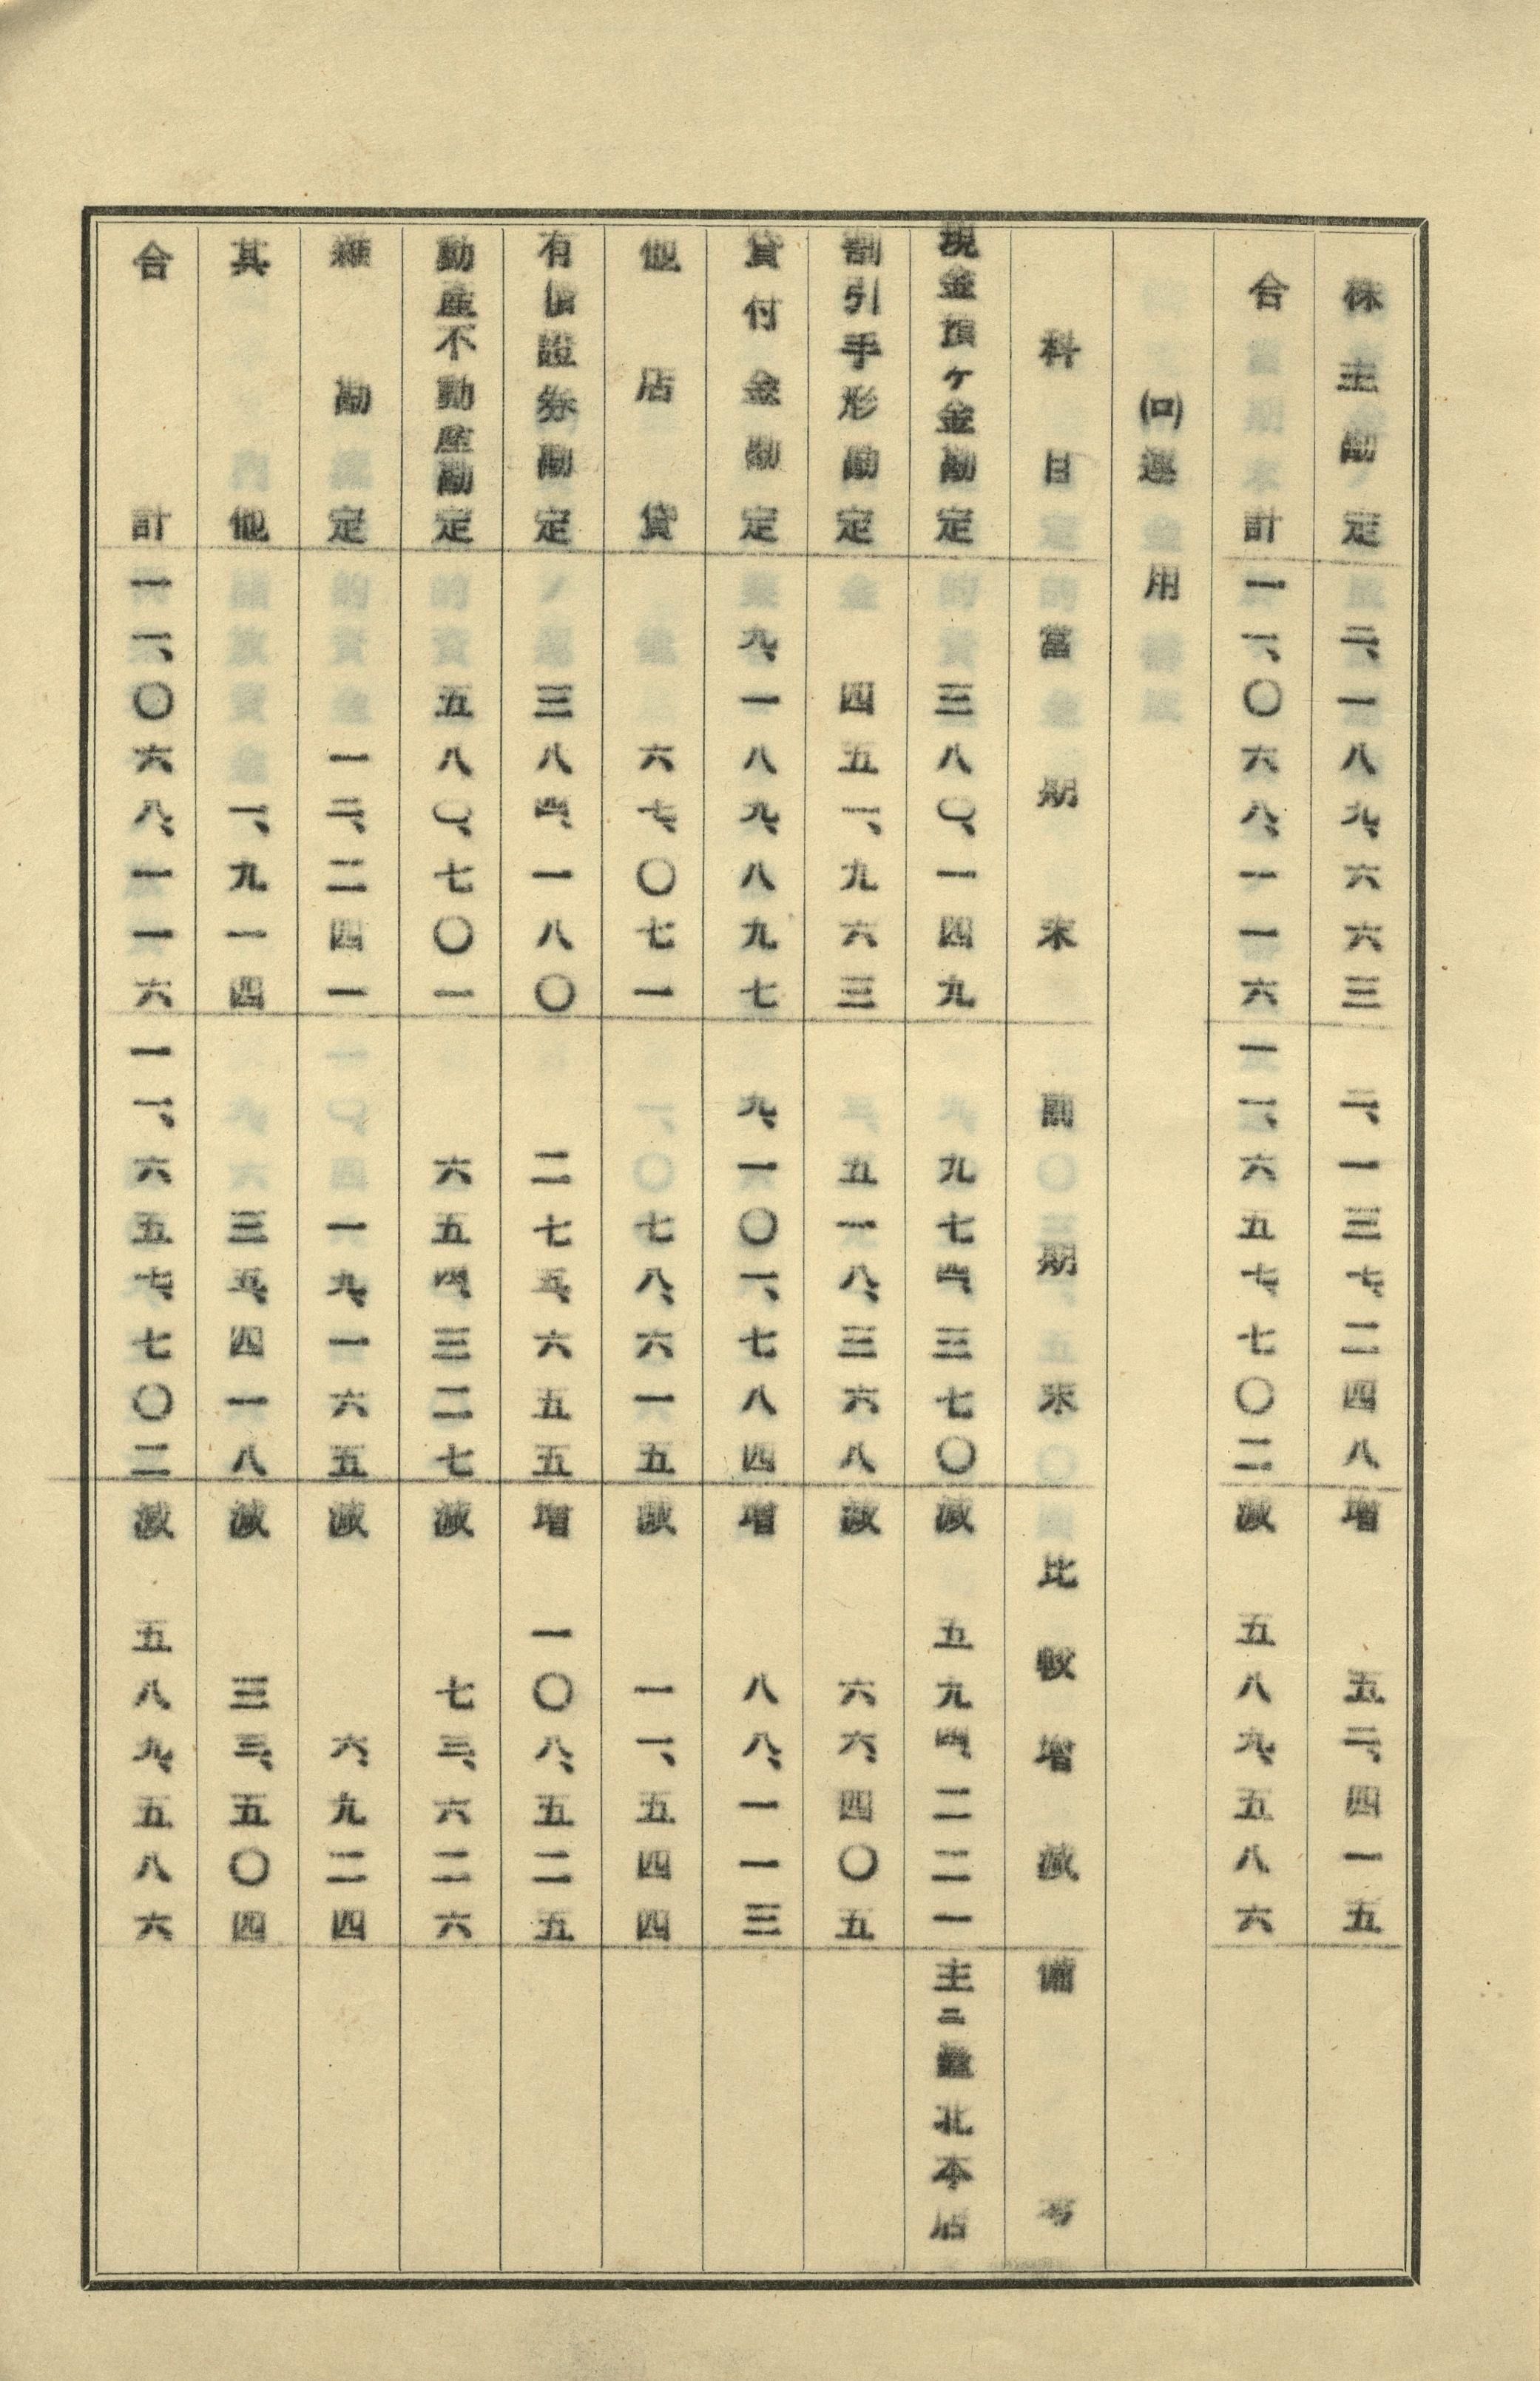 株主勘定 二、一八九、六六三 二、一三七、二四八 增 五二、四一五
合計 一一、〇六八、一一六 一一、六五七、七〇二 減 五八九、五八六
(ロ)運用
科目 當期末 前期末 比較增減 備考
現金預ケ金勘定 三八〇、一四九 九七四、三七〇 減 五九四、二二一 主ニ臺北本店
割引手形勘定 四五一、九六三 五一八、三六八 減 六六、四〇五
貸付金勘定 九、一八九、八九七 九、一〇一、七八四 增 八八、一一三
他店貸 六七、〇七一 七八、六一五 減 一一、五四四
有價證券勘定 三八四、一八〇 二七五、六五五 增 一〇八、五二五
動產不動產勘定 五八〇、七〇一 六五四、三二七 減 七三、六二六
雜勘定 一二、二四一 一九、一六五 減 六、九二四
其他 一、九一四 三五、四一八 減 三三、五〇四
合計 一一、〇六八、一一六 一一、六五七、七〇二 減 五八九、五八六